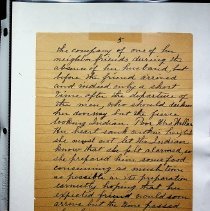 5
the company of one of her
neighbor friends during the
absence of her husband, but
before the friend arrived
and indeed only a short
time after the departure of
the men, who should darken
her doorway but the fierce
looking Indian. Poor Mrs.
Her heart sank within her, but
she must not let the Indian
know that she felt alarmed so
she prepared him some food
consuming as much time
as possible in its preparation
earnestly hoping that her
expected friend would soon
arrive but the time passed